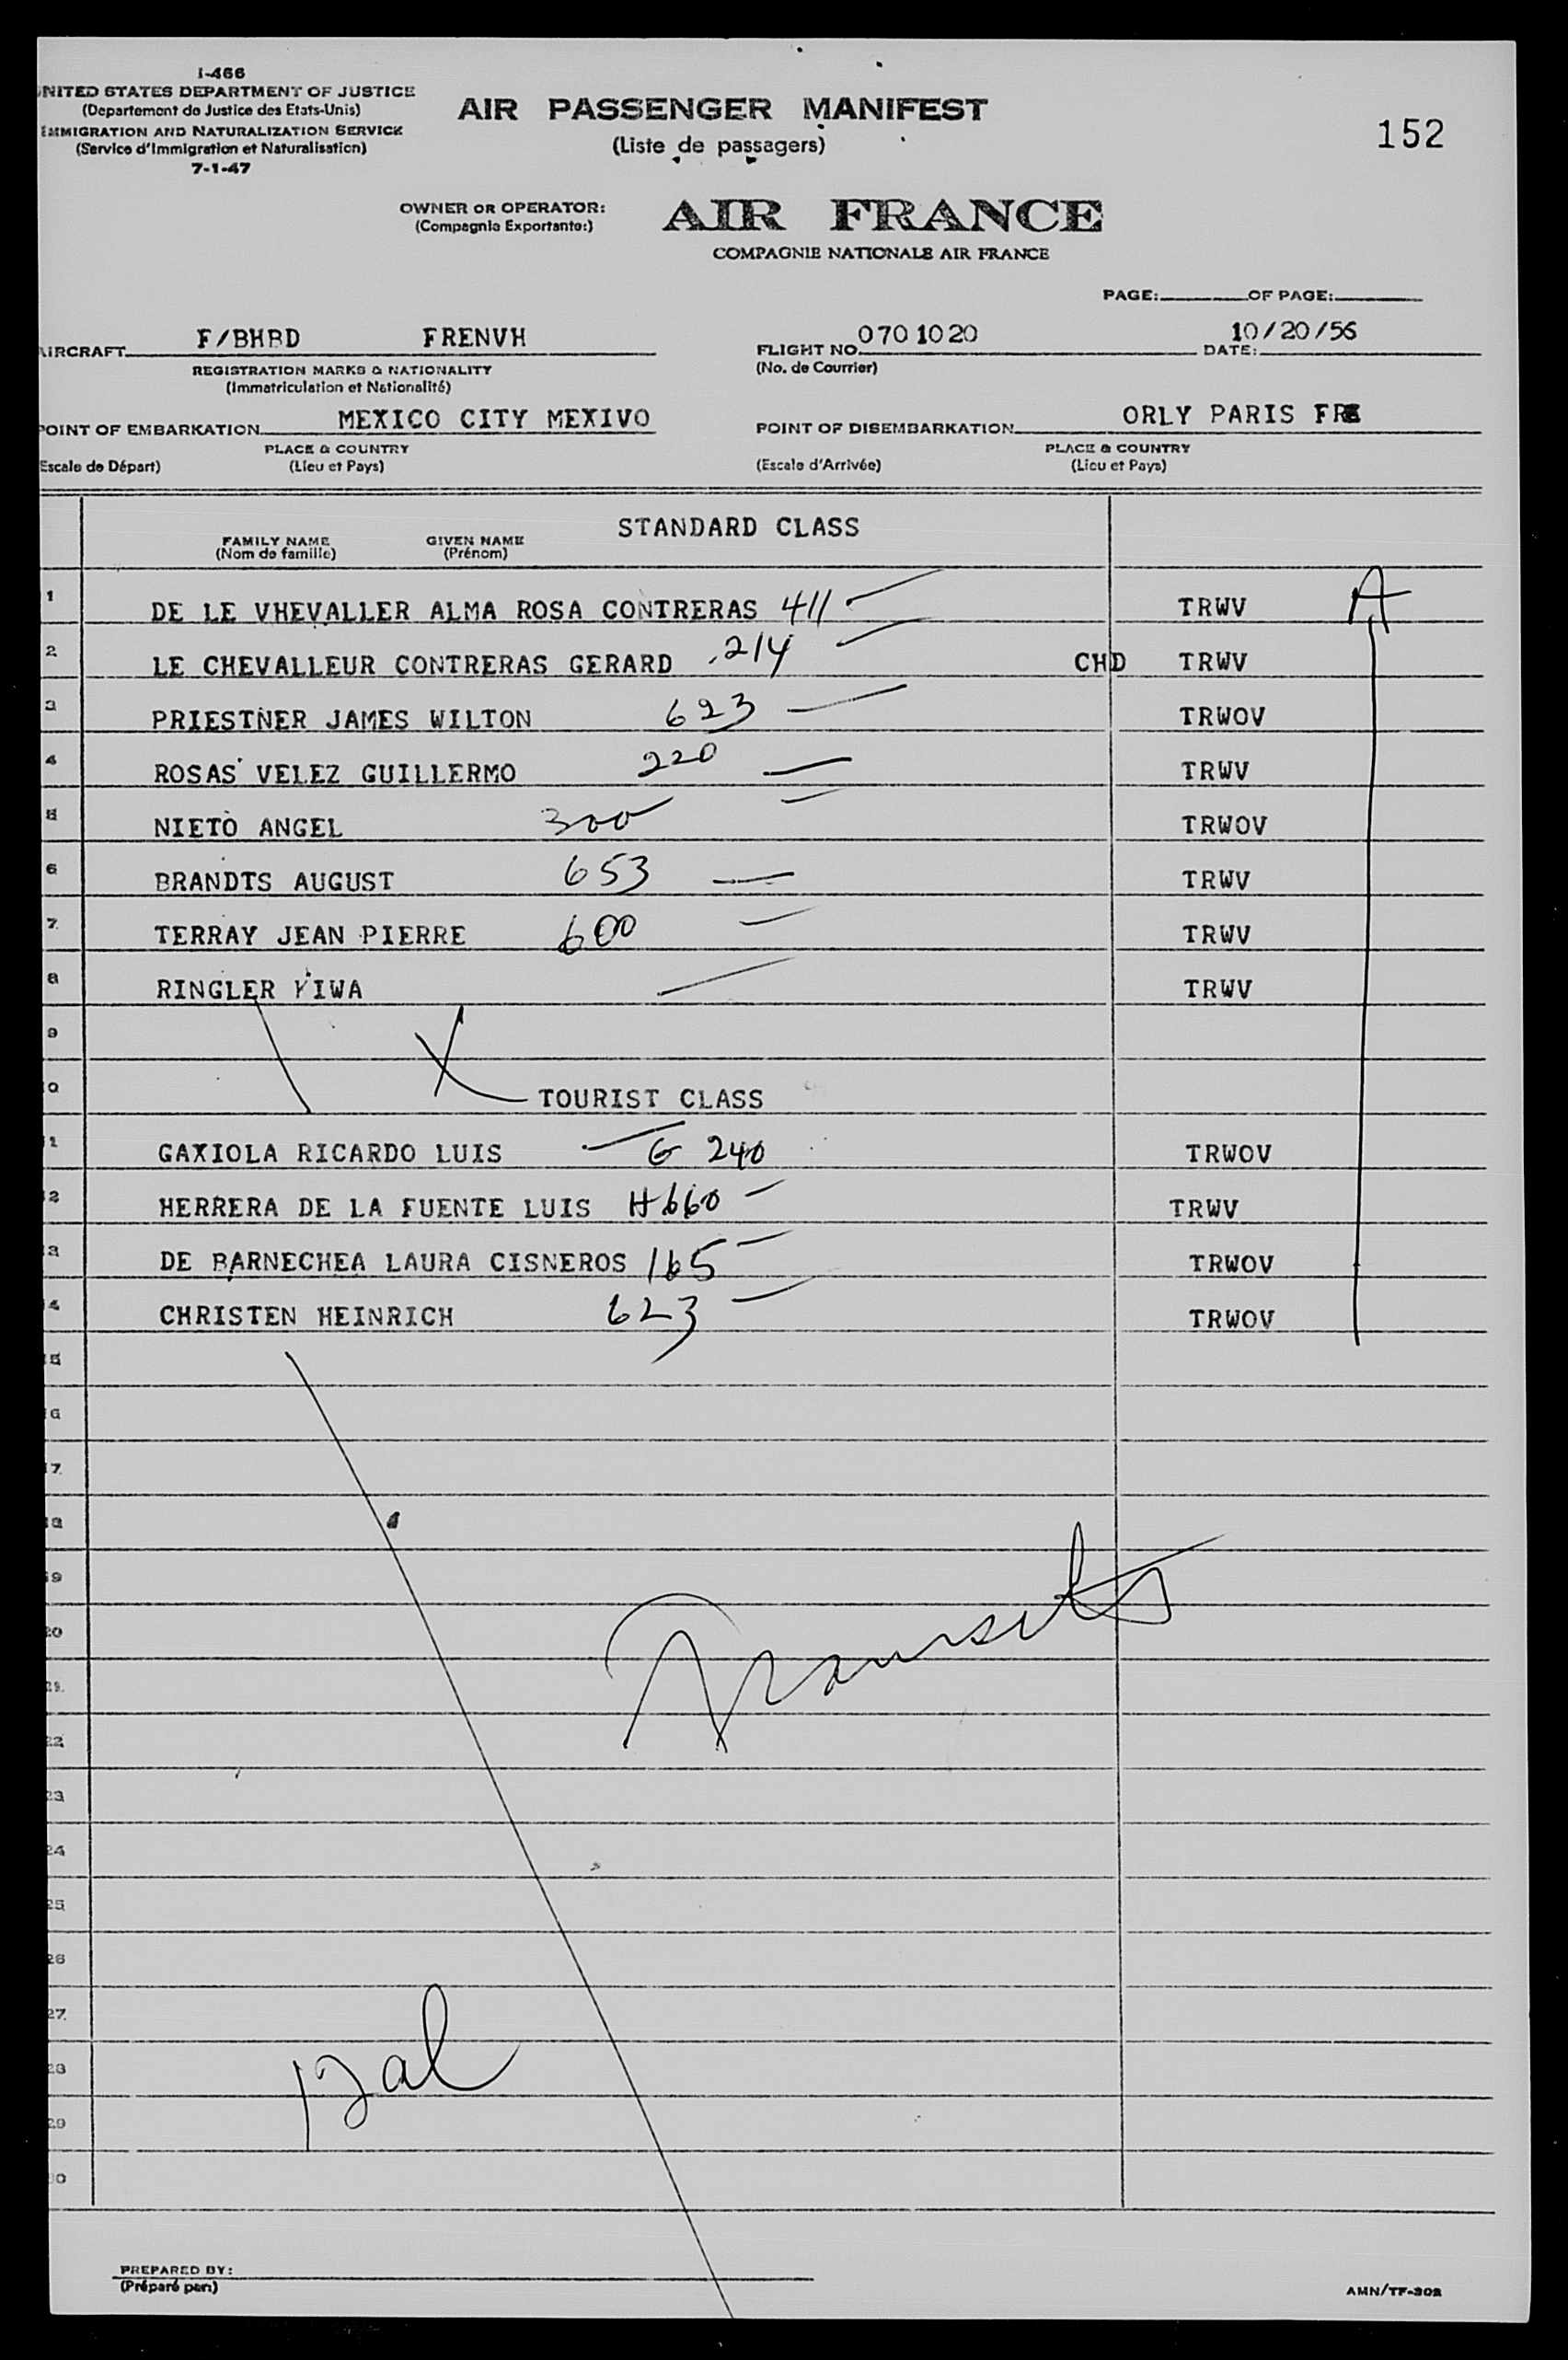 I-466
UNITED STATES DEPARTMENT OF JUSTICE
(Departement de Justice des Etats-Unis)
IMMIGRATION AND NATURALIZATION SERVICE
(Service d'Immigration et Naturalisation)
7-1-47
AIR PASSENGER MANIFEST
(Liste de passagers)
152
OWNER OR OPERATOR:
(Compagnie Exportante:)
AIR FRANCE
COMPAGNIE NATIONALE AIR FRANCE
PAGE: OF PAGE:
AIRCRAFT F/BHBD FRENVH
REGISTRATION MARKS & NATIONALITY
(Immatriculation et Nationalité)
FLIGHT NO. 070 1020
(No. de Courrier)
DATE: 10/20/56
POINT OF EMBARKATION MEXICO CITY MEXIVO
PLACE & COUNTRY
(Escale de Départ) (Lieu et Pays)
POINT OF DISEMBARKATION ORLY PARIS FRE
PLACE & COUNTRY
(Escale d'Arrivée) (Lieu et Pays)
STANDARD CLASS
FAMILY NAME GIVEN NAME
(Nom de famille) (Prénom)
1 DE LE VHEVALLER ALMA ROSA CONTRERAS 411 TRWV A
2 LE CHEVALLEUR CONTRERAS GERARD 214 CHD TRWV
3 PRIESTNER JAMES WILTON 623 TRWOV
4 ROSAS VELEZ GUILLERMO 220 TRWV
5 NIETO ANGEL 300 TRWOV
6 BRANDTS AUGUST 653 TRWV
7 TERRAY JEAN PIERRE 600 TRWV
8 RINGLER YIWA TRWV
9
0 TOURIST CLASS
1 GAXIOLA RICARDO LUIS G 240 TRWOV
2 HERRERA DE LA FUENTE LUIS H660 TRWV
3 DE BARNECHEA LAURA CISNEROS 165 TRWOV
4 CHRISTEN HEINRICH 623 TRWOV
15
16
17
18
19
20
21
22
23
24
25
26
27
28
29
30
Transits
PREPARED BY:
(Préparé par:)
AMN/TF-302